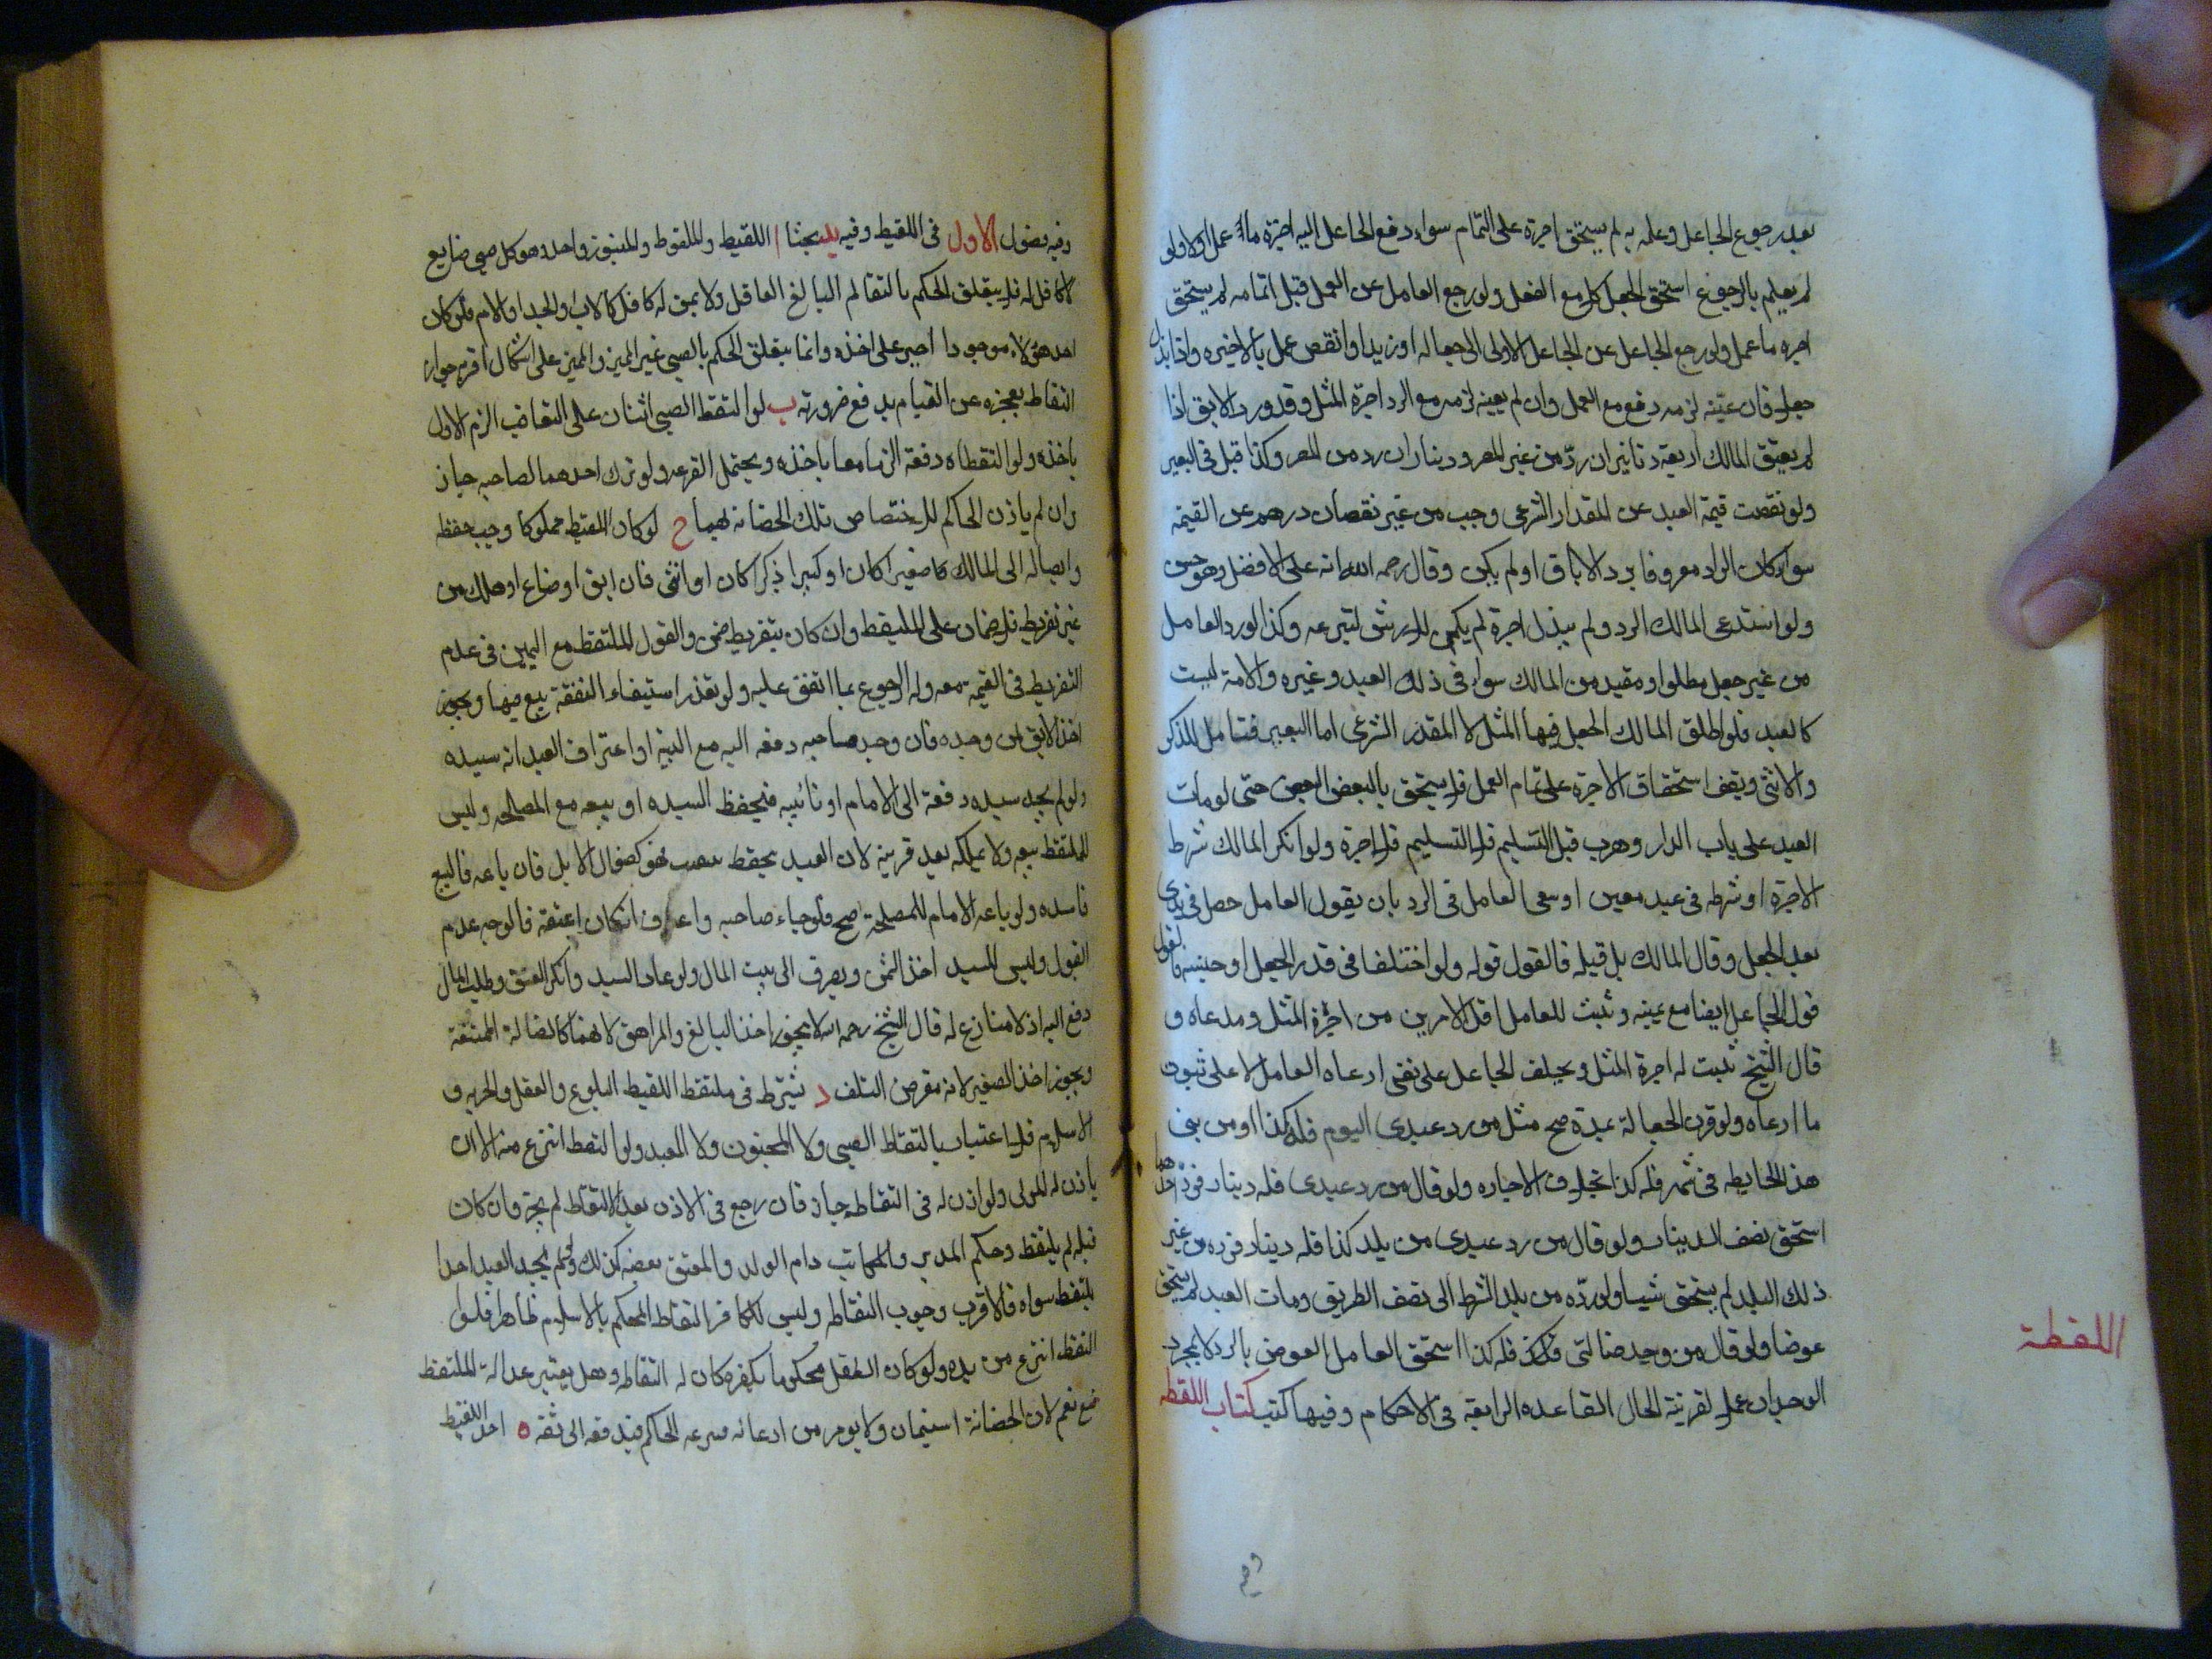 بعد رجوع الجاعل وعلمه به لم يستحق اجرة على التمام سواء دفع الجاعل اليه اجرة ما عمل اولا ولو
لم يعلم بالرجوع استحق الجعل كلا مع الفعل ولو رجع العامل عن العمل قبل اتمامه لم يستحق
اجره ما عمل ولو رجع الجاعل عن الجاعل الاولى الى جعاله ازيد او انقص عمل بالاخيره واذا بذل
جعلا فان عينه لزمه دفع مع العمل وان لم يعينه لزمه مع الرد اجرة المثل وقد ورد الابق اذا
لم يعتق المالك اربعة دنانير ان رده من غير المصر ودينار ان رده من المصر وكذا قيل في البعير
ولو نقصت قيمة العبد عن المقدار الشرعي وجب من غير نقصان درهم عن القيمة
سواء كان الراد معروفا برد الاباق او لم يكن وقال رحمه الله انه على الافضل وهو حسن
ولو استدعى المالك الرد ولم يبذل اجرة لم يكن للراد شئ لتبرعه وكذا لو رد العامل
من غير جعل مطلوا ومقيد من المالك سواء في ذلك العبد وغيره والامة ليست
كالعبد فلو اطلق المالك الجعل فيها المثل لا المقدر الشرعى اما البعير فشامل للذكر
والانثى ويقف استحقاق الاجرة على تمام العمل فلا يستحق بالبعض البعض حتى لو مات
العبد على باب الدار وهرب قبل التسليم فلا اجرة ولو انكر المالك شرط
الاجرة او شرطه في عبد معين او سعى العامل في الرد بان يقول العامل حصل في يدى
بعد الجعل وقال المالك بل قبله فالقول قوله ولو اختلفا في قدر الجعل او جنسه فالقول
قول الجاعل ايضا مع يمينه وثبت للعامل اقل الامرين من اجرة المثل ومدعاه و
قال الشيخ ثبت له اجرة المثل ويحلف الجاعل على نفى ادعاه العامل لا على ثبوت
ما ادعاه ولو قرن الجعالة بمدة صح مثل من رد عبدي اليوم فله كذا او من بنى
هذا الحايط في شهر فله كذا بخلاف الاجاره ولو قال من رد عبدى فله دينار فرد احدهما
استحق نصف الدينار ولو قال من رد عبدي من بلد كذا فله دينار فرده من غير
ذلك البلد لم يستحق شيئا ولو رده من بلد الشرط الى نصف الطريق ومات العبد لم يستحق
عوضا ولو قال من وجد ضالتى فله كذا استحق العامل العوض بالرد لا بمجرد
الوجدان عملا لقرينة الحال القاعده الرابعة في الاحكام وفيها كتب كتاب اللقطه
اللقطة
وفيه فصول الاول في اللقيط وفيه يد بحثا ا اللقيط والملقوط والمنبوذ واحد وهو كل صبي ضايع
لا كافل له فلا يتعلق الحكم بالتقاط البالغ العاقل ولا بمن له كافل كالاب والجد او الام فلو كان
احد هؤلاء موجودا اجبر على اخذه وانما يتعلق الحكم بالصبي غير المميز والمميز على اشكال اقربه جواز
التقاطه بعجزه عن القيام بدفع ضرورته ب لو التقط الصبي اثنان على التعاقب الزم الاول
باخذه ولو التقطاه دفعة الزما معا باخذه ويحتمل القرعه ولو ترك احدهما لصاحبه جاز
وان لم ياذن الحاكم للاختصاص تلك الحضانه لهما ج لو كان اللقيط مملوكا وجب حفظه
وايصاله الى المالك صغيرا كان او كبيرا ذكرا كان او انثى فان ابق او ضاع او هلك من
غير تفريط فلا ضمان على الملتقط وان كان بتفريط ضمن والقول للملتقط مع اليمين في عدم
التفريط في القيمة معه وله الرجوع بما انفق عليه ولو تعذر استيفاء النفقة بيع فيها ويجوز
اخذ الابق لمن وجده فان وجد صاحبه دفعه اليه مع البينه او اعتراف العبد انه سيده
ولو لم يجد سيده دفعه الى الامام او نائبه فيحفظ لسيده او يبيعه مع المصلحه وليس
للملتقط بيعه ولا تملكه بعد تعريفه لان العبد يحفظ بنفسه فهو كضوال الابل فان باعه فالبيع
فاسد ولو باعه الامام للمصلحة صح فلو جاء صاحبه واعترف انه كان اعتقه فالوجه عدم
القبول وليس للسيد اخذ الثمن ويصرف الى بيت المال ولو عاد السيد وانكر العتق وطلب المال
دفع اليه اذ لا منازع له قال الشيخ رحمه الله لا يجوز اخذ البالغ والمراهق لانهما كالضالة الممتنعة
ويجوز اخذ الصغير لانه معرض التلف د يشترط في ملتقط اللقيط البلوغ والعقل والحريه و
الاسلام فلا اعتبار بالتقاط الصبي ولا المجنون ولا العبد ولو التقط انتزع منه الا ان
ياذن له المولى ولو اذن له في التقاطه جاز فان رجع في الاذن بعد الالتقاط لم يجز وان كان
قبله لم يلتقط وحكم المدبر والمكاتب وام الولد والمعتق بعضه كذلك ولو لم يجد العبد احدا
يلتقطه سواه فالاقرب وجوب التقاطه وليس للكافر التقاط المحكم بالاسلام ظاهرا فلو
التقط انتزع من يده ولو كان الطفل محكوما بكفره كان له التقاطه وهل يعتبر عدالة الملتقط
منع نعم لان الحضانة استيمان ولا يومن من ادعائه فينزعه الحاكم فيدفعه الى ثقه ه اخذ اللقيط